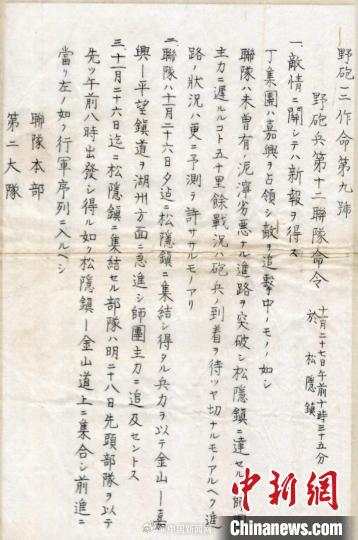 野砲一二作命第九號
野砲兵第十二聯隊命令
十一月二十七日午前十時三十五分
於松隱鎮
一、敵情ニ關シテハ新報ヲ得ス
丁集團ハ嘉興ヲ占領シ敵ヲ追擊中ノモノノ如シ
聯隊ハ未曾有ノ泥濘劣悪ナル道路ヲ突破シ松隱鎮ニ達セルモ師團
主力ニ遲ルルコト五十里餘戰況ハ砲兵ノ到着ヲ待ツヤ切ナルモノアルヘク進
路ノ狀況ハ更ニ予測ヲ許ササルモノアリ
二、聯隊ハ十一月二十六日夕迄ニ松隱鎮ニ集結シ得タル兵力ヲ以テ金山ー嘉
興ー平望鎮道ヲ湖州方面ニ急進シ師團主力ニ追及セントス
三、十一月二十六日迄ニ松隱鎮ニ集結セル部隊ハ明二十八日先頭部隊ヲ以テ
先ツ午前八時出發シ得ル如ク松隱鎮ー金山道上ニ集合シ前進ニ
當リ左ノ如ク行軍序列ニ入ルヘシ
聯隊本部
第二大隊
中新网
Chinanews.com
@中国新闻网